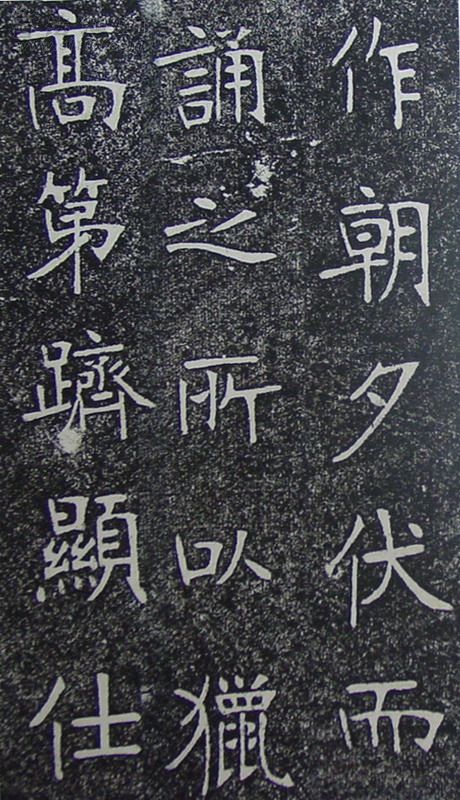 作朝夕伏而
誦之所以獵
髙第躋顯仕